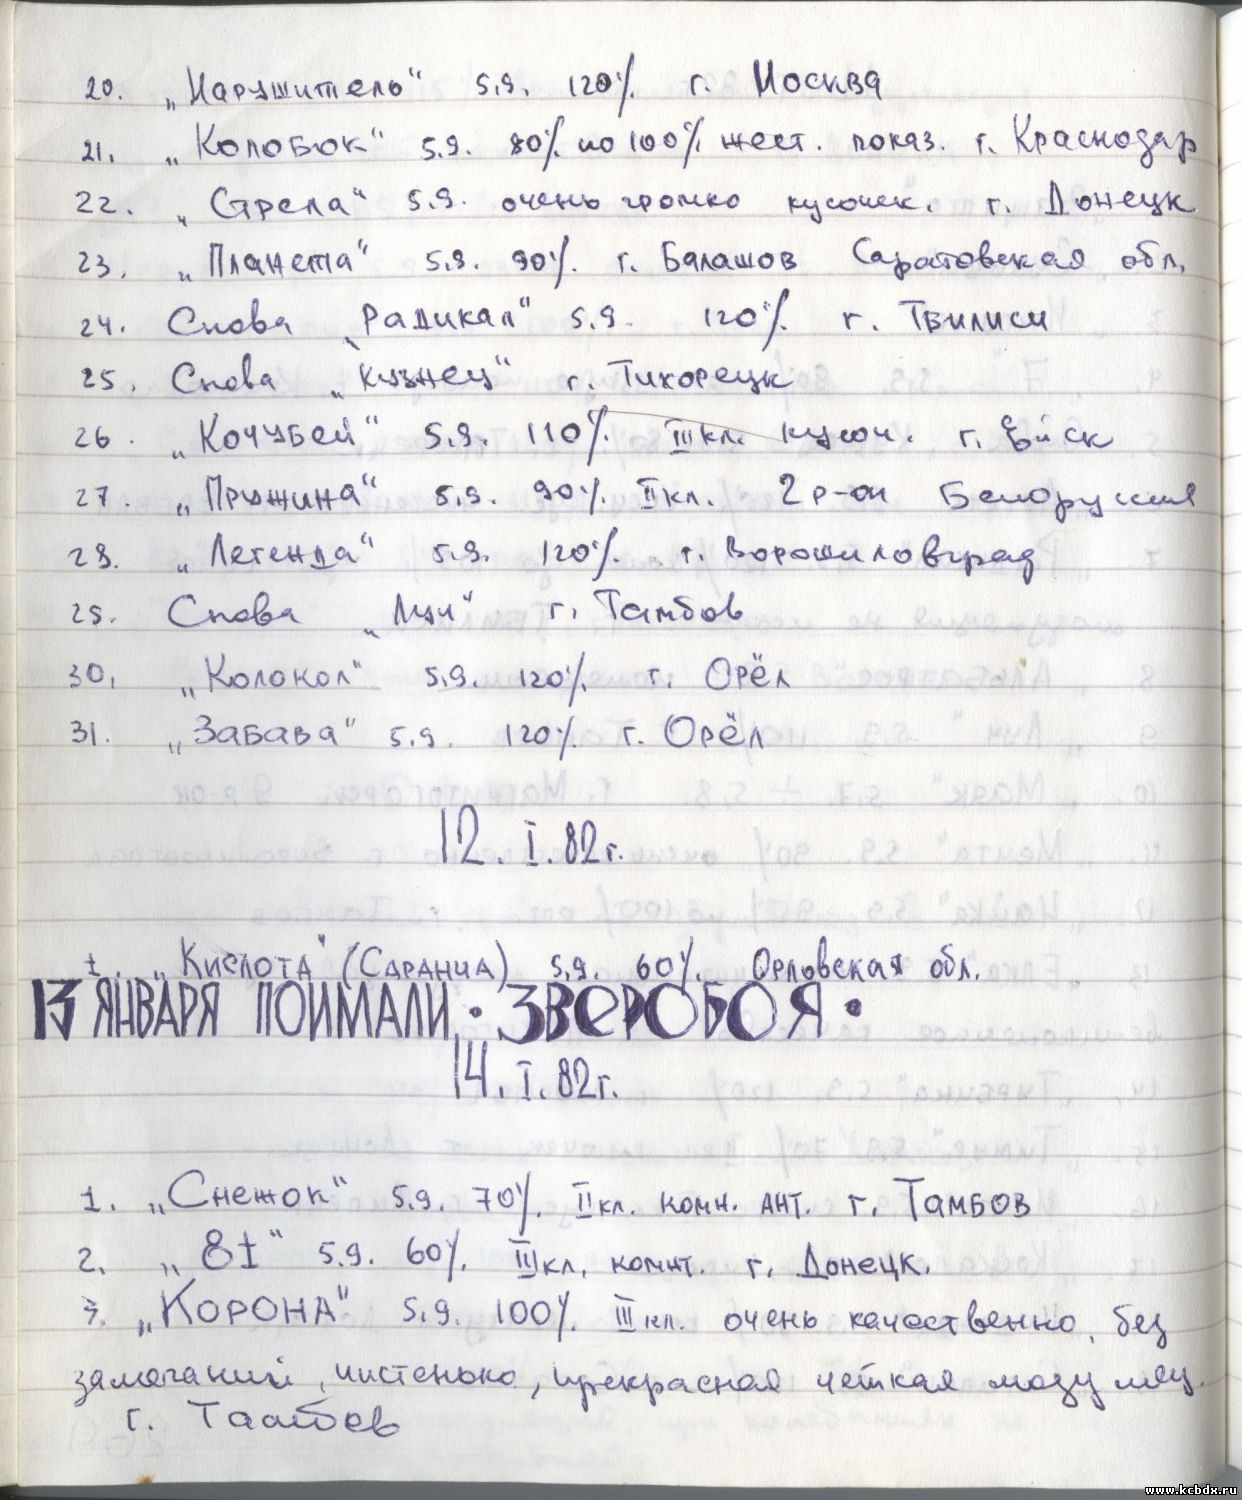 20. „Нарушитель“ 5.9. 120% г. Москва
21. „Колобок“ 5.9. 80% по 100% жест. показ. г. Краснодар
22. „Стрела“ 5.9. очень громко кусочек. г. Донецк
23. „Планета“ 5.9. 90%. г. Балашов Саратовская обл.
24. Снова „Радикал“ 5.9. 120% г. Тбилиси
25. Снова „Кузнец“ г. Тихорецк
26. „Кочубей“ 5.9. 110%. III кл. кусоч. г. Ейск
27. „Пружина“ 5.9. 90%. II кл. 2 р-он Белоруссия
28. „Легенда“ 5.9. 120%. г. Ворошиловград
29. Снова „Луч“ г. Тамбов
30. „Колокол“ 5.9. 120% г. Орёл
31. „Забава“ 5.9. 120%. г. Орёл
12. I. 82г.
1. „Кислота“ (Саранча) 5.9. 60%. Орловская обл.
13 ЯНВАРЯ ПОЙМАЛИ • ЗВЕРОБОЯ •
14. I. 82г.
1. „Снежок“ 5.9. 70%. II кл. комн. ант. г. Тамбов
2. „81“ 5.9. 60%. III кл. комнт. г. Донецк.
3. „КОРОНА“ 5.9. 100%. III кл. очень качественно, без
замечаний, чистенько, прекрасная чёткая модуляц.
г. Тамбов
www.kcbdx.ru